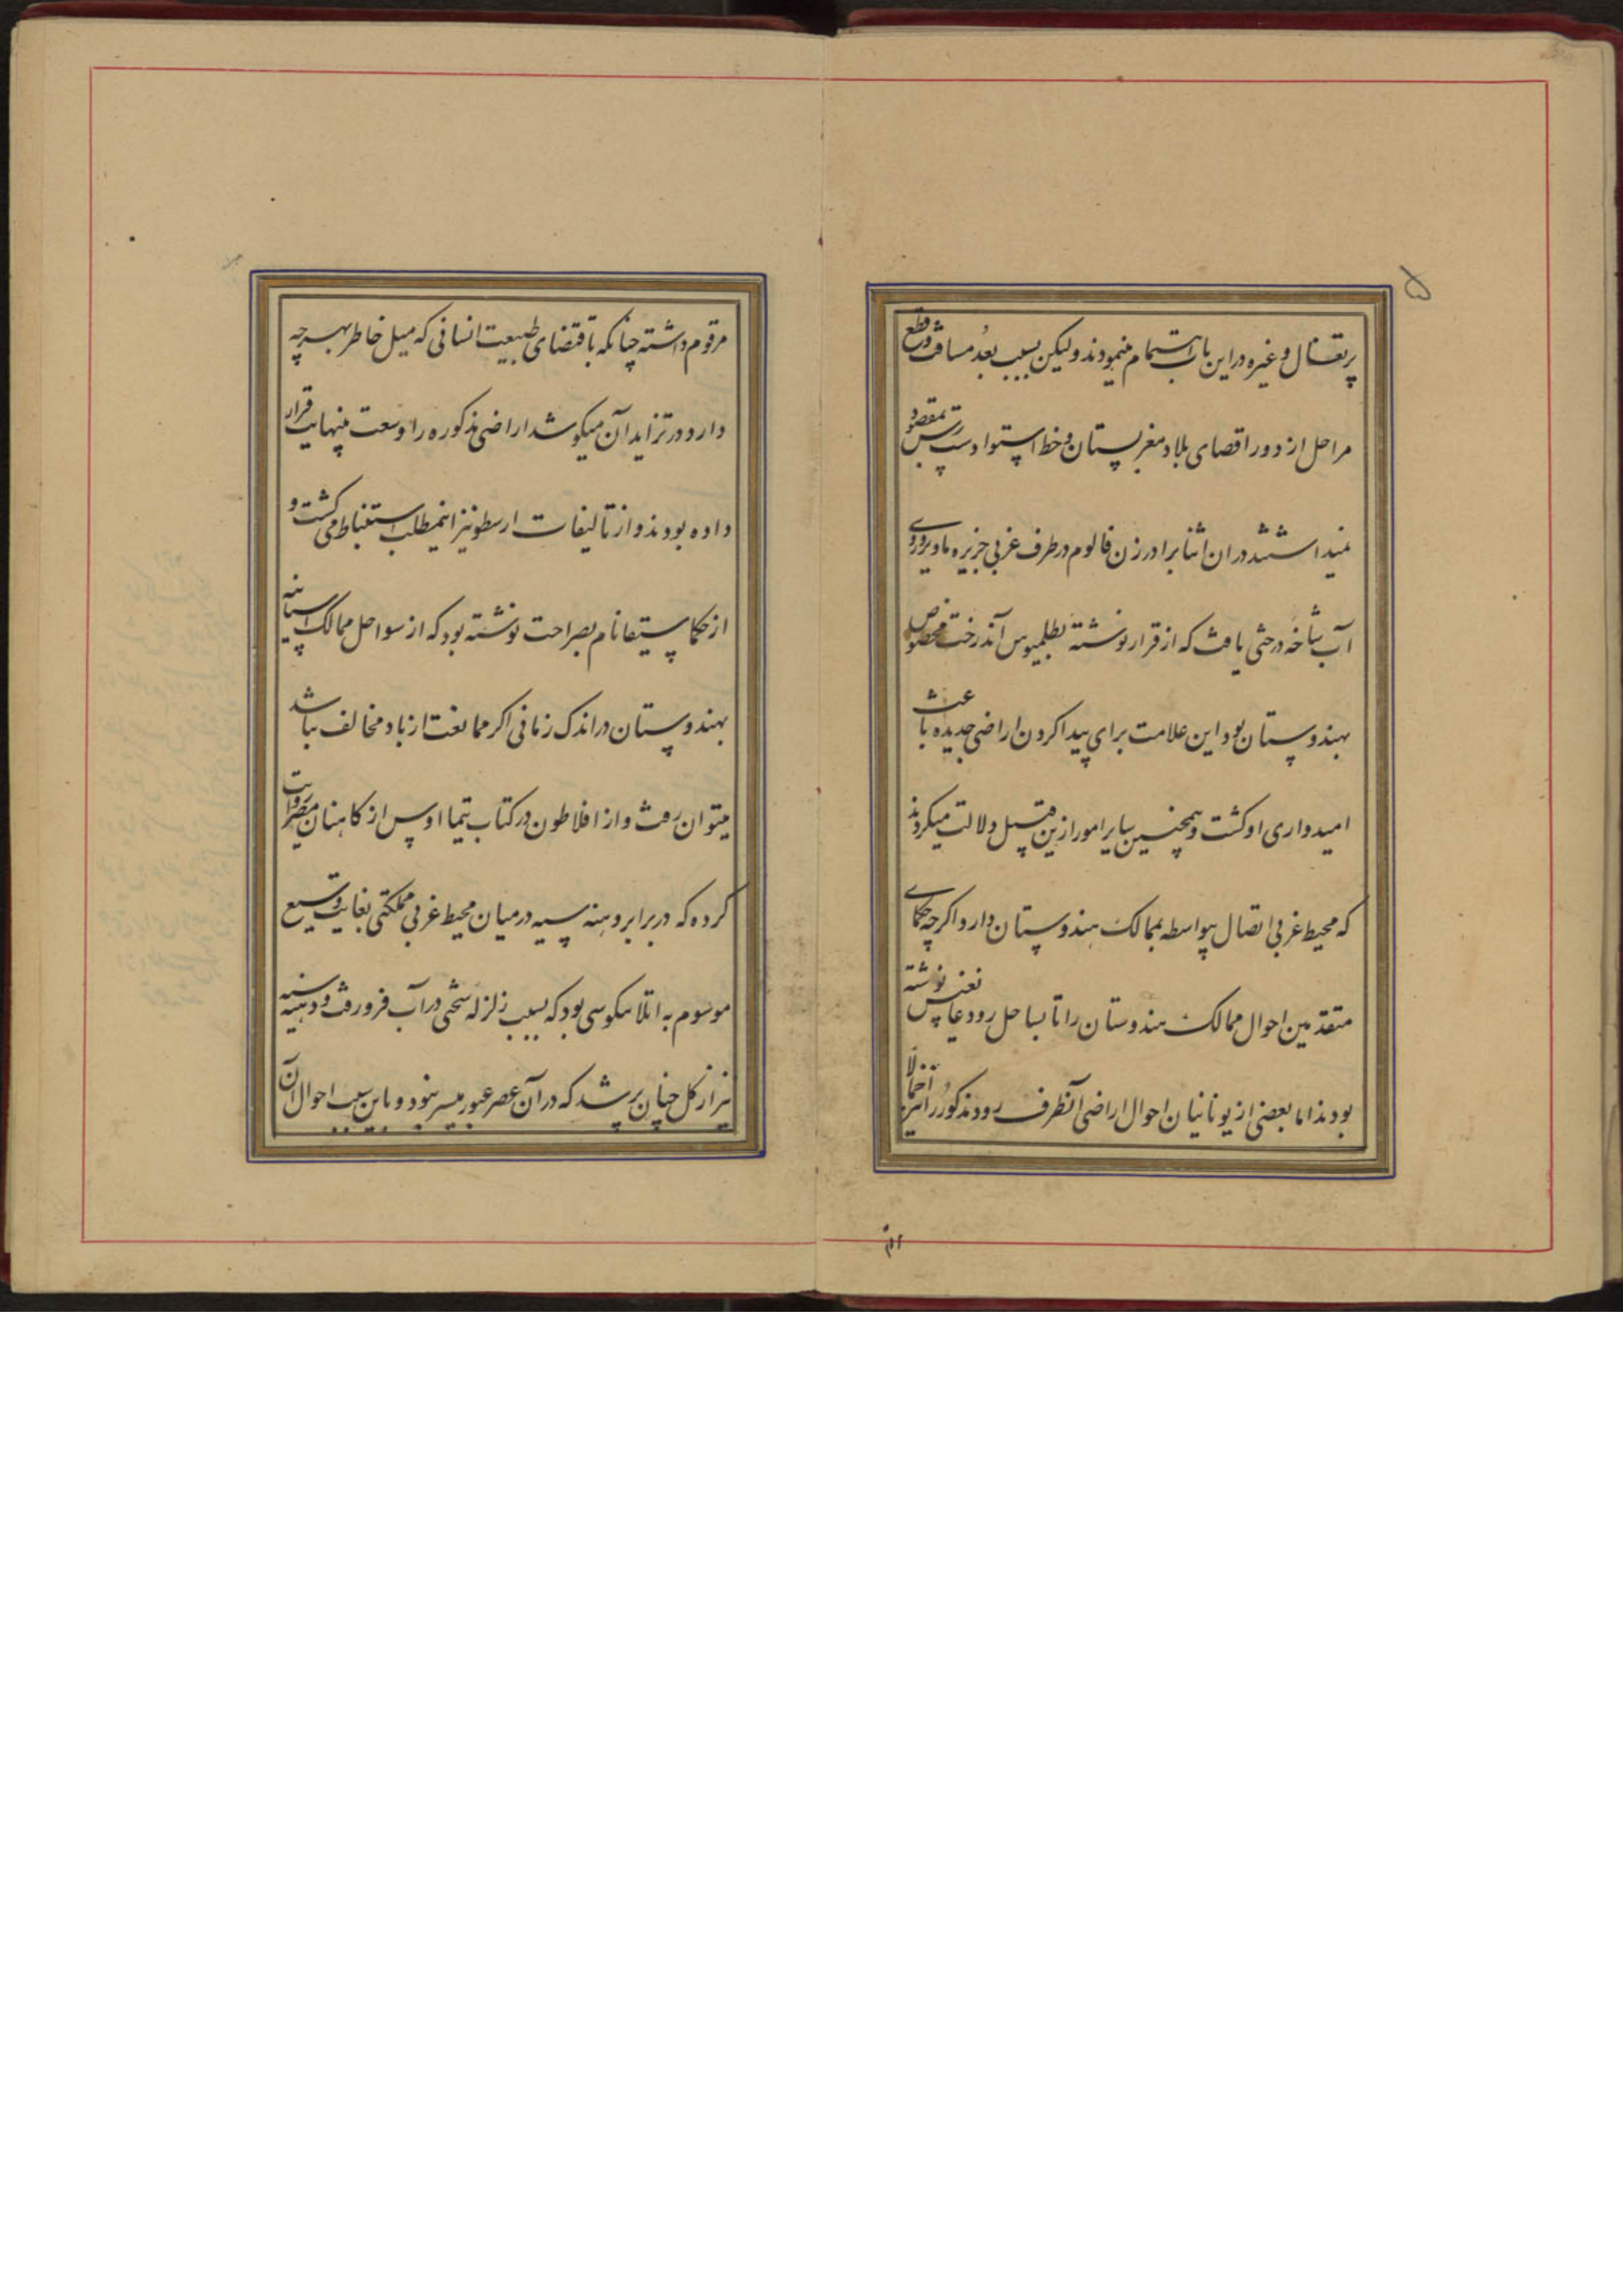 ۵
پرتقال و غیره در این باب اهتمام مینمودند ولیکن بسبب بُعد مسافت و قطع
مراحل از دور اقصای بلاد مغربستان و خط استوا دست رس بمقصود
نمیداشتند در ان اثنا برادر زن فالوم در طرف غربی جزیره ماویرو روی
آب شاخه درختی یافت که از قرار نوشته بطلمیوس آن درخت مخصوص
بهندوستان بود این علامت برای پیدا کردن اراضی جدیده باعث
امیدواری او گشت و همچنین سایر امور ازین قبیل دلالت میکردند
که محیط غربی اتصال بیواسطه بممالک هندوستان دارد اگر چه حکمای
متقدمین احوال ممالک هندوستان را تا بساحل رود غانغس نوشته
بودند اما بعضی از یونانیان احوال اراضی آنطرف رود مذکور را نیز اجمالاً
مرقوم داشته چنانکه باقتضای طبیعت انسانی که میل خاطر بهر چه
دارد در تزاید آن میکوشد اراضی مذکوره را وسعت بینهایت قرار
داده بودند و از تالیفات ارسطو نیز اینمطلب استنباط می گشت و
از حکما سنیقا نام بصراحت نوشته بود که از سواحل ممالک اسپانیه
بهندوستان در اندک زمانی اگر ممانعت از باد مخالف نباشد
میتوان رفت و از افلاطون در کتاب تیما اوس از کاهنان مصر روایت
کرده که در برابر دهنه سبته در میان محیط غربی مملکتی بغایت وسیع
موسوم به اتلانیکوسی بود که بسبب زلزله سختی در آب فرو رفت و دهنه سبته
نیز از گل چنان پر شد که در آن عصر عبور میسر نبود و باین سبب احوال آن